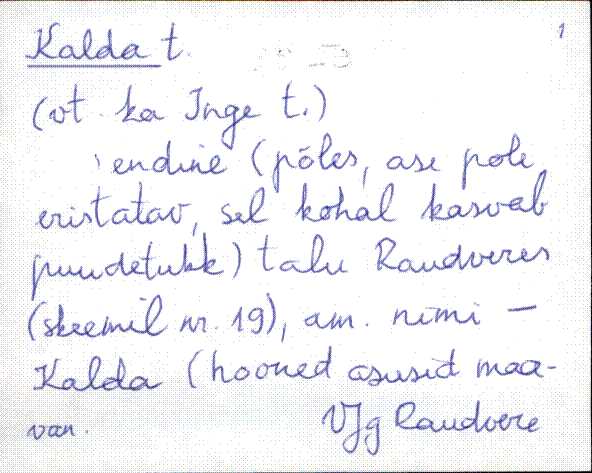 Kalda t. 1
(vt. ka Inge t.)
endine (põles, ase pole
eristatav, sel kohal kasvab
puudetukk) talu Raudveres
(skeemil nr. 19), am. nimi –
Kalda (hooned asusid maa-
van. VJg Raudvere